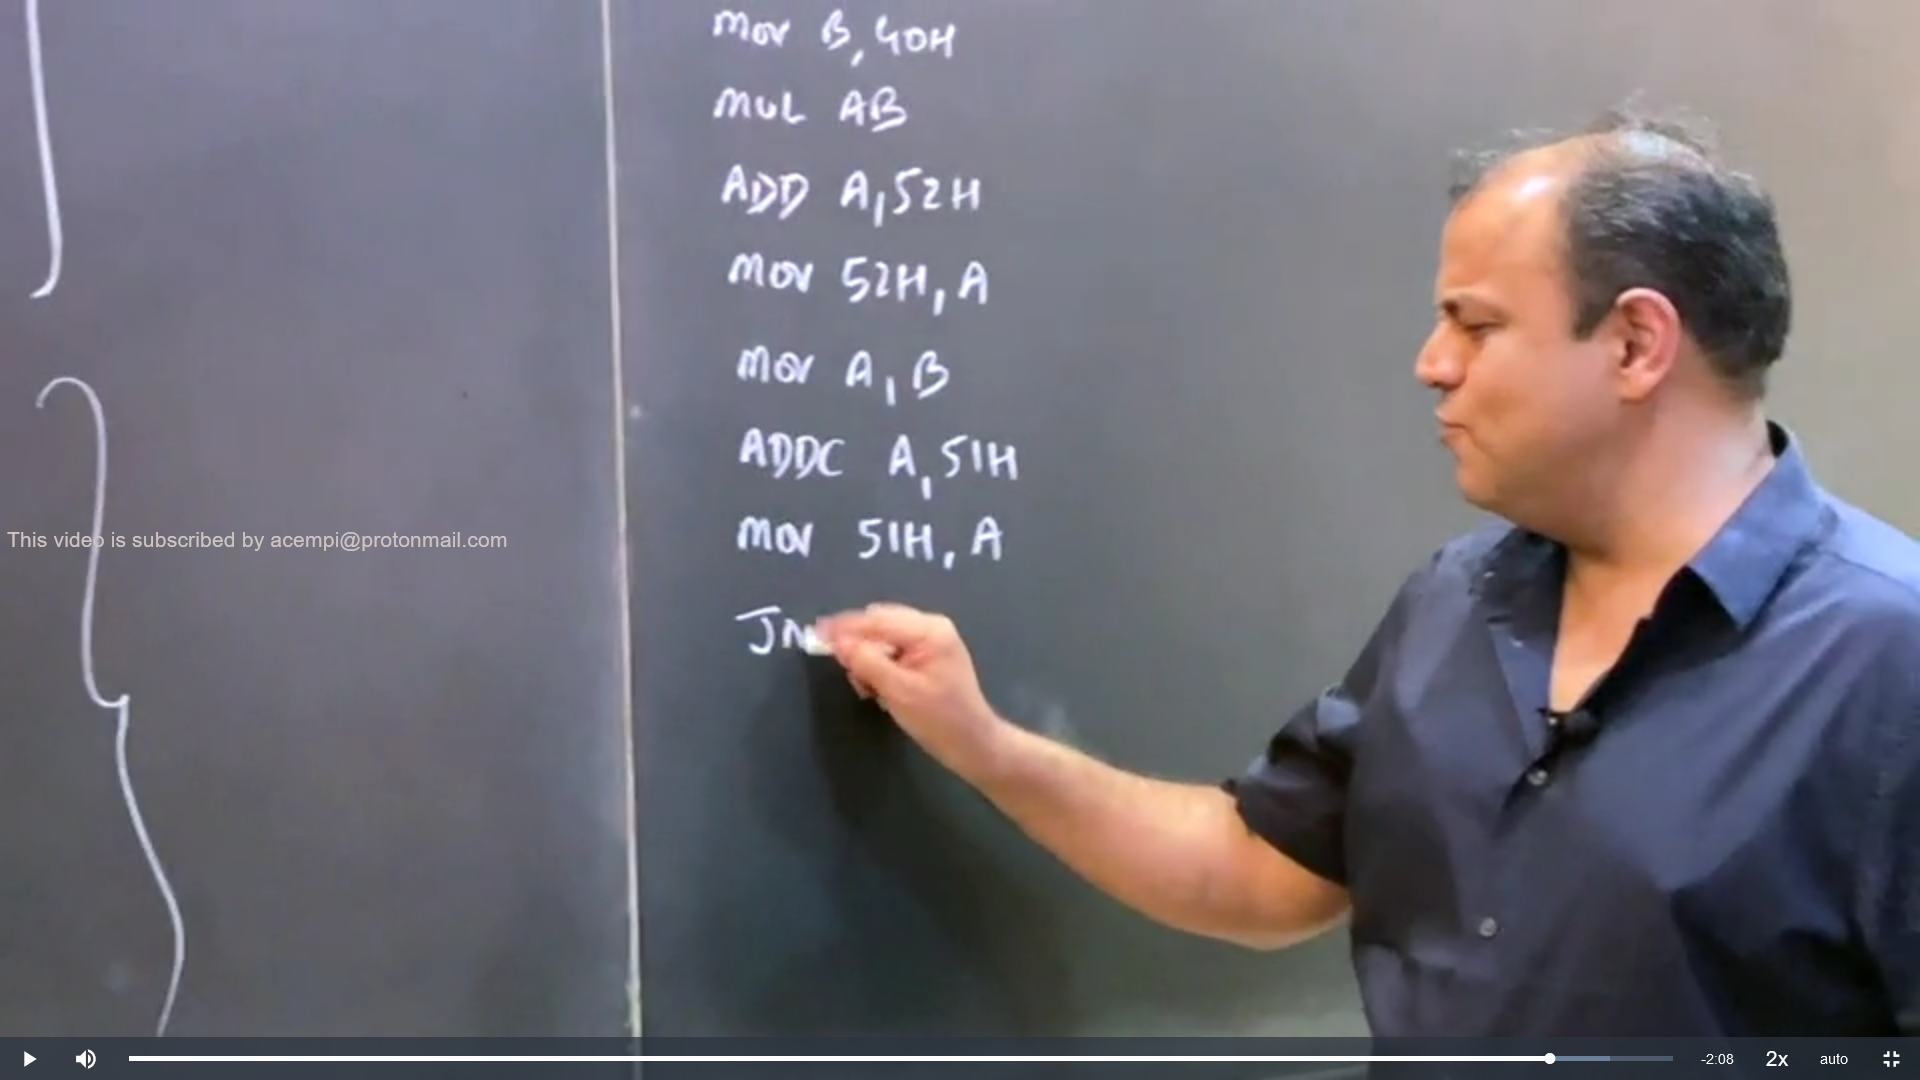 MOV B,40H
MUL AB
ADD A,52H
MOV 52H,A
MOV A,B
ADDC A,51H
MOV 51H,A
JN
This video is subscribed by acempi@protonmail.com
-2:08 2x auto